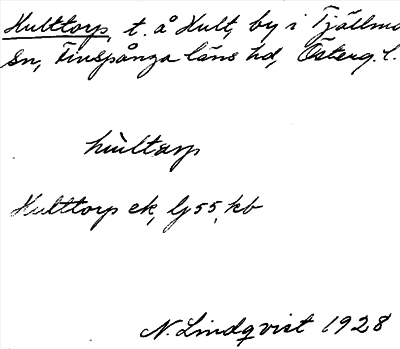 Hulttorp, t. å Hult, by i Tjällmo
sn, Finspånga läns hd, Österg. l.
hùltarp
Hulttorp ek, lj 55, kb
N. Lindqvist 1928